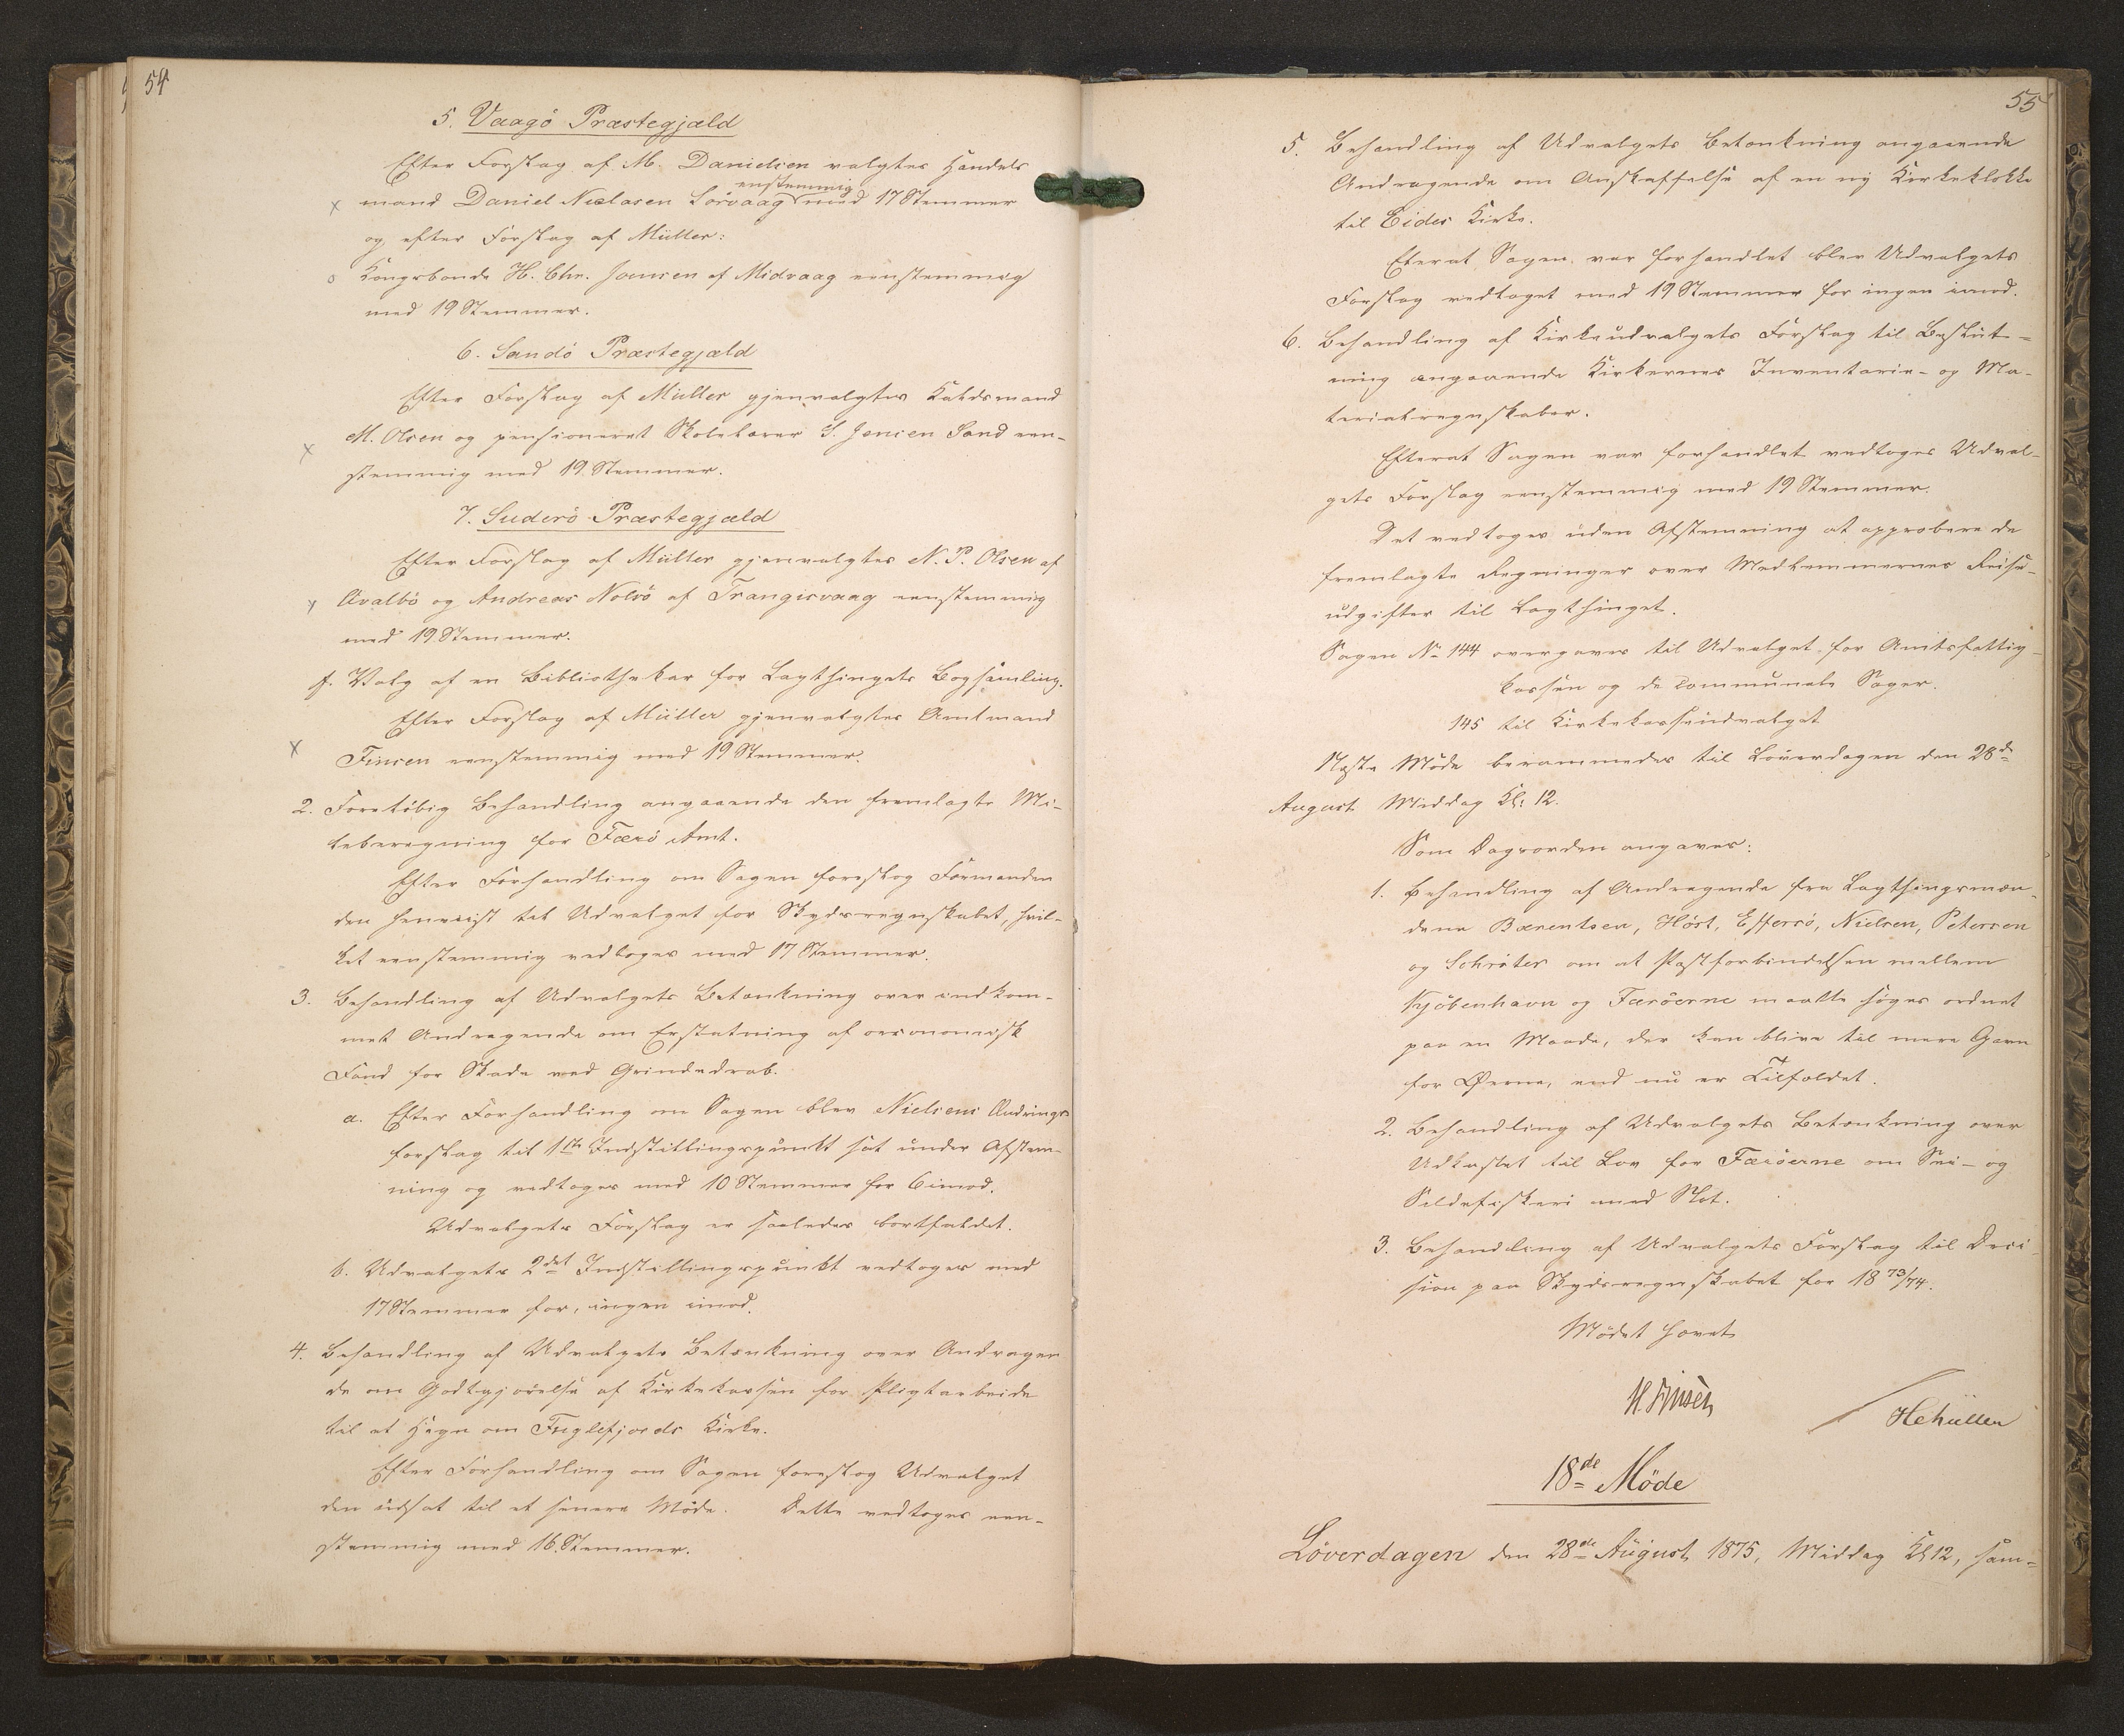 54
5. Vaagö Præstegjæld
Efter Forslag af M. Danielsen valgtes Handels
eenstemmig
x mand Daniel Niclasen Sörvaag med 17 Stemmer
og efter Forslag af Müller:
o Kongsbonde H. Chr. Joensen af Midvaag eenstemmig
med 19 Stemmer.
6. Sandö Præstegjæld
Efter Forslag af Müller gjenvalgtes
x M. Olsen og pensioneret Skolelærer S. Jensen Sand een-
stemmig med 19 Stemmer.
7. Suderö Præstegjæld
Efter Forslag af Müller gjenvalgtes N. P. Olsen af
x Qvalbö og Andreas Nolsö af Trangisvaag eenstemmig
med 19 Stemmer.
f. Valg af en Bibliothekar for Lagthingets Bogsamling.
Efter Forslag af Müller gjenvalgtes Amtmand
x Finsen eenstemmig med 19 Stemmer.
2. Foreløbig Behandling angaaende den fremlagte Mi-
leberegning for Færö Amt.
Efter Forhandling om Sagen foreslog Formanden
den henviist til Udvalget for Skydsregnskabet, hvil-
ket eenstemmig vedtoges med 17 Stemmer.
3. Behandling af Udvalgets Betænkning over indkom-
met Andragende om Erstatning af oeconomisk
Fond for Skade ved Grindedrab.
a. Efter Forhandling om Sagen blev Nielsens Ændrings-
forslag til 1ste Indstillingspunkt sat under Afstem-
ning og vedtoges med 10 Stemmer for 6 imod.
Udvalgets Forslag er saaledes bortfaldet.
b. Udvalgets 2det Indstillingspunkt vedtoges med
17 Stemmer for, ingen imod.
4. Behandling af Udvalgets Betænkning over Andragen
de om Godtgjørelse af Kirkekassen for Pligtarbeide
til et Hegn om Fuglefjords Kirke.
Efter Forhandling om Sagen foreslog Udvalget
den udsat til et senere Møde. Dette vedtoges een-
stemmig med 16 Stemmer.
55
5. Behandling af Udvalgets Betænkning angaaende
Andragende om Anskaffelse af en ny Kirkeklokke
til Eides Kirke.
Efterat Sagen var forhandlet blev Udvalgets
Forslag vedtaget med 19 Stemmer for ingen imod.
6. Behandling af Kirkeudvalgets Forslag til Beslut-
ning angaaende Kirkernes Inventarie- og Ma-
terialregnskaber.
Efterat Sagen var forhandlet vedtoges Udval-
gets Forslag eenstemmig med 19 Stemmer.
Det vedtoges uden Afstemning at approbere de
fremlagte Regninger over Medlemmernes Reise-
udgifter til Lagthinget.
Sagen No 144 overgaves til Udvalget for Amtsfattig-
kassen og de communale Sager.
145 til Kirkekasseudvalget
Næste Møde berammedes til Löverdagen den 28de
August Middag Kl. 12.
Som Dagsorden angaves:
1. Behandling af Andragende fra Lagthingsmæn-
dene Bærentsen, Höst, Effersö, Nielsen, Petersen
og Schröter om at Postforbindelsen mellem
Kjöbenhavn og Færöerne maatte søges ordnet
paa en Maade, der kan blive til mere Gavn
for Øerne, end nu er Tilfældet.
2. Behandling af Udvalgets Betænkning over
Udkastet til Lov for Færöerne om Sei- og
Sildefiskeri med Not.
3. Behandling af Udvalgets Forslag til Deci-
sion paa Skydsregnskabet for 1873/74.
Mødet hævet
H. Finsen
HCMüller
18de Möde
Löverdagen den 28de August 1875, Middag Kl 12, sam-